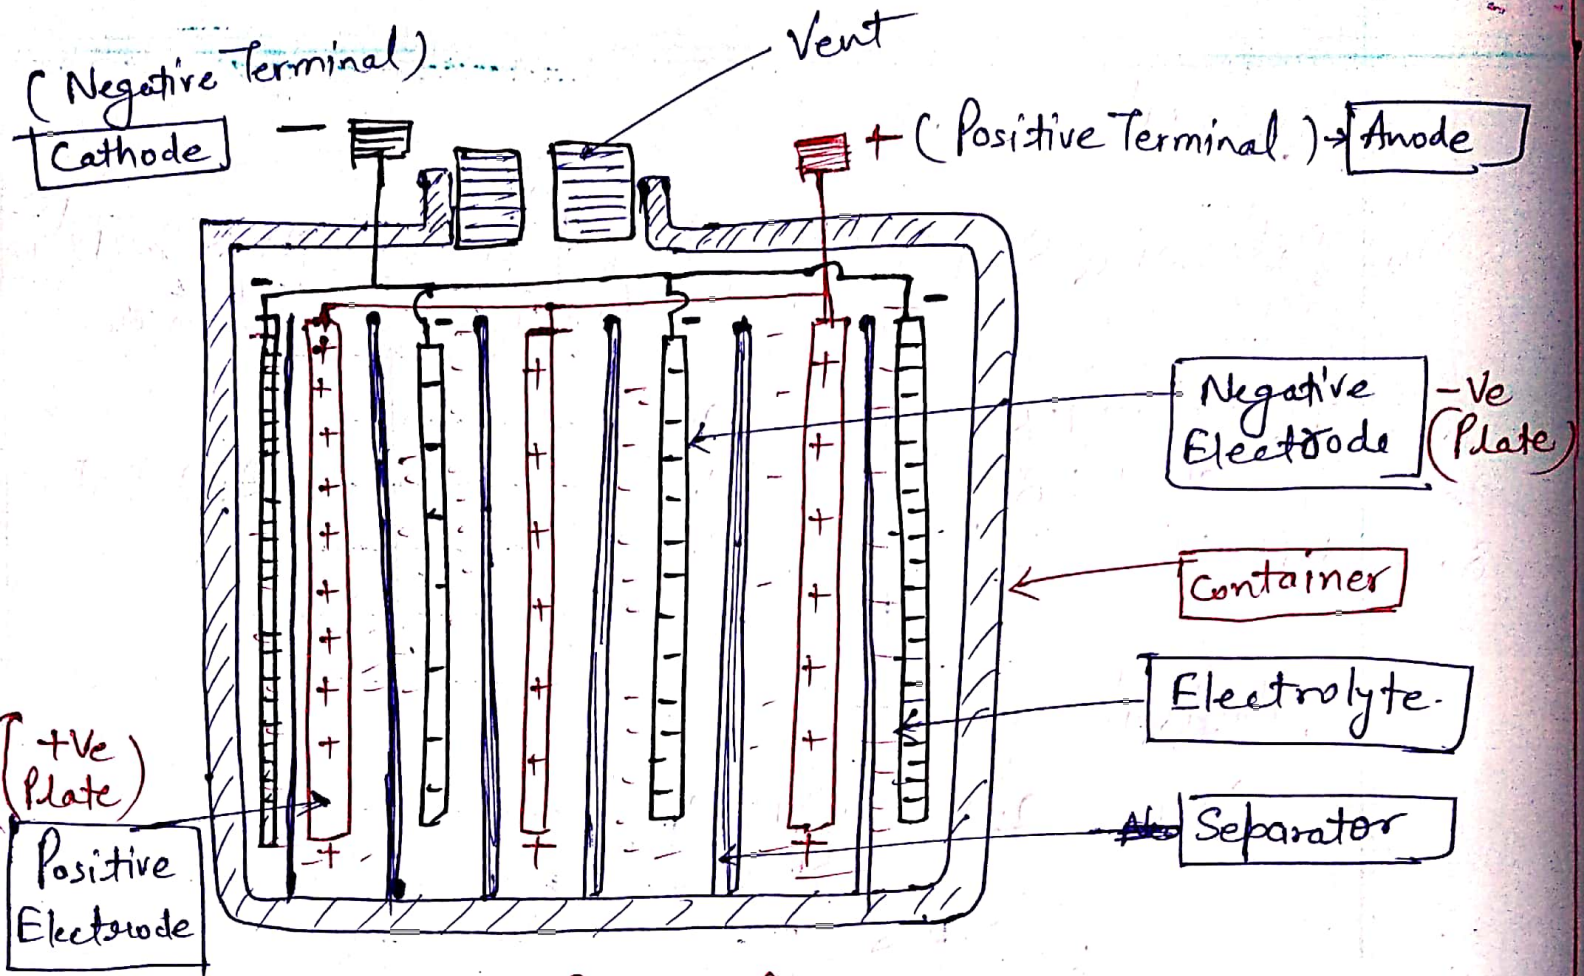 Vent
(Negative Terminal)
Cathode
−
+ (Positive Terminal.) → Anode
−
−
−
−
Negative
Electrode
-Ve
(Plate)
Container
Electrolyte.
Separator
+Ve
(Plate)
Positive
Electrode
+
+
+